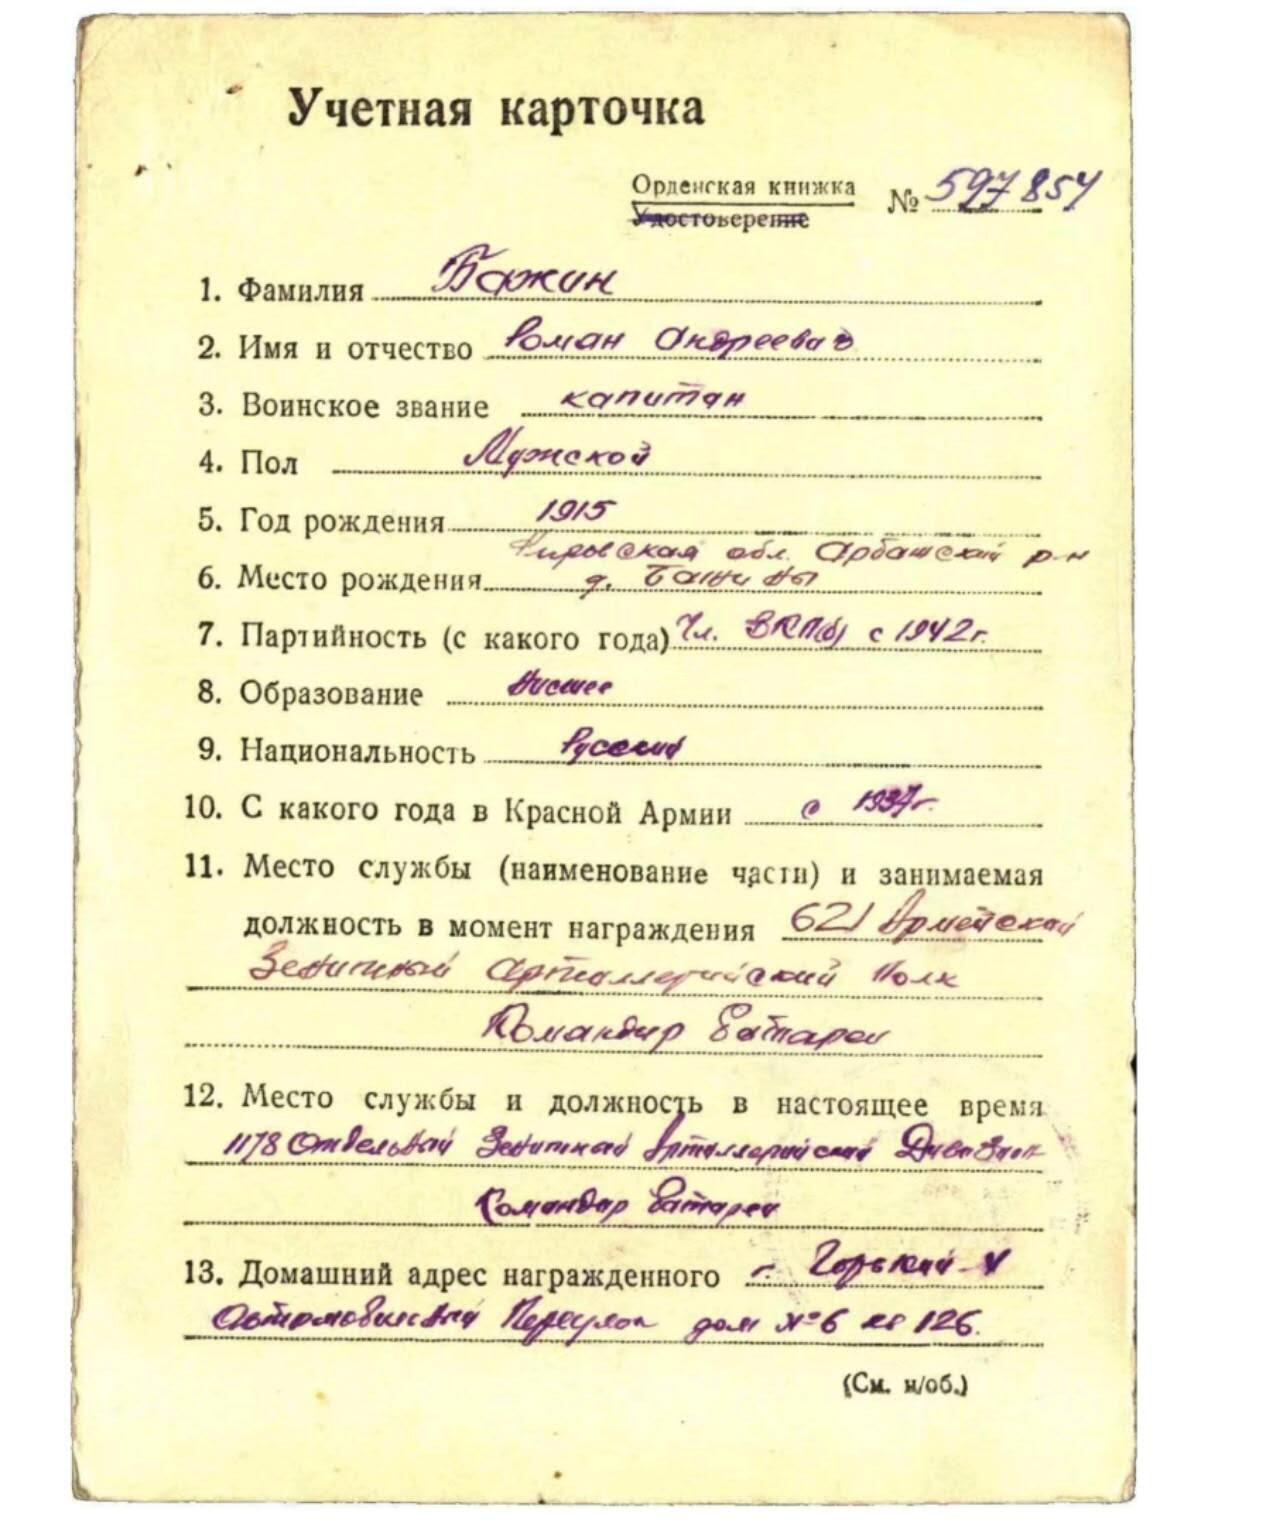 Учетная карточка
Орденская книжка № 597854
Удостоверение
1. Фамилия Бажин
2. Имя и отчество Роман Андреевич
3. Воинское звание капитан
4. Пол Мужской
5. Год рождения 1915
Кировская обл. Арбажский р-н
6. Место рождения д. Бажины
7. Партийность (с какого года) Чл. ВКП(б) с 1942 г.
8. Образование Высшее
9. Национальность Русский
10. С какого года в Красной Армии с 1937 г.
11. Место службы (наименование части) и занимаемая
должность в момент награждения 621 Армейский
Зенитный Артиллерийский Полк
Командир Батареи
12. Место службы и должность в настоящее время
1178 Отдельный Зенитный Артиллерийский Дивизион
Командир Батареи
13. Домашний адрес награжденного г. Горький
Автомобильный Переулок дом № 6 кв 126.
(См. н/об.)